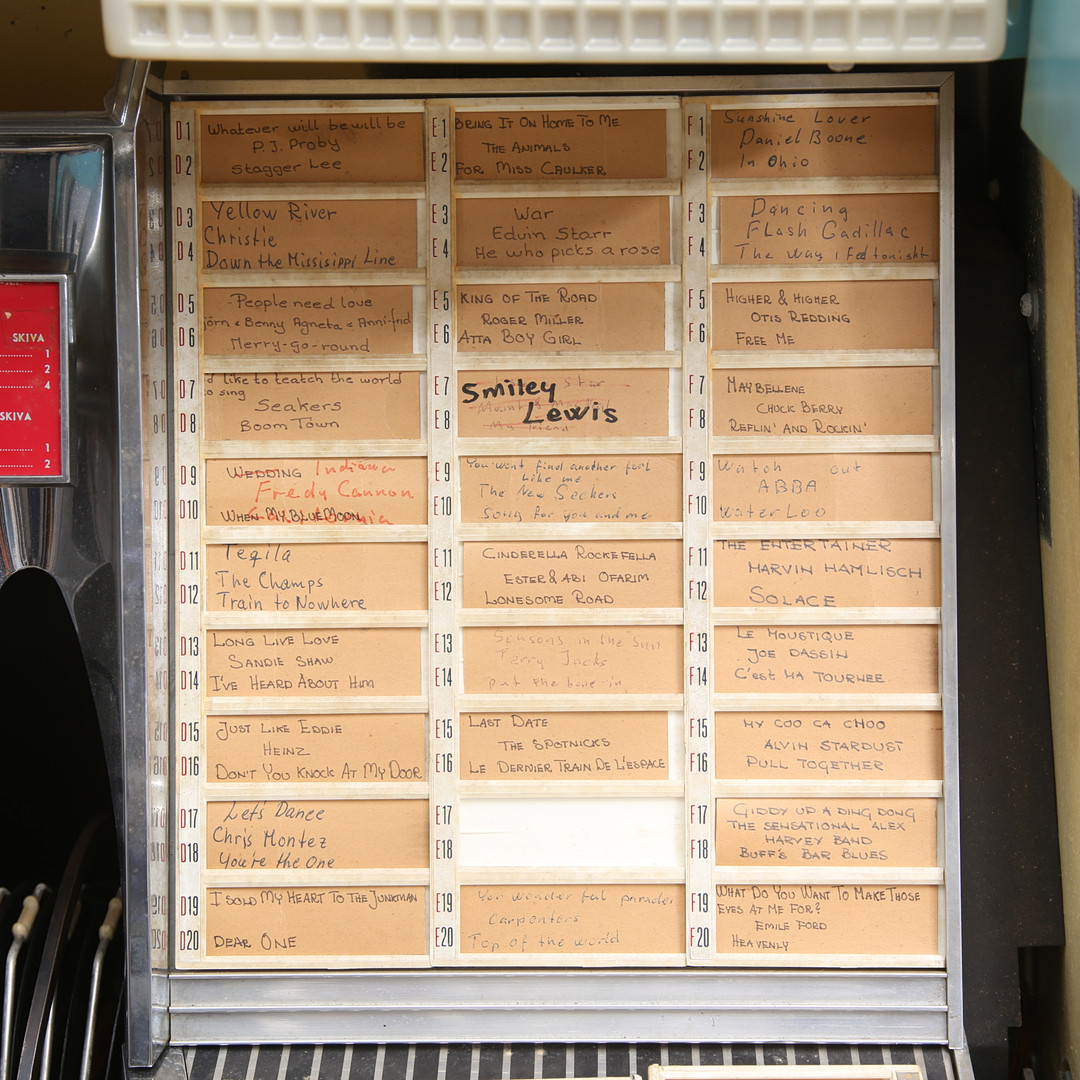 SKIVA
1
2
4
SKIVA
1
2
D1
D2
Whatever will be will be
P.J. Proby
Stagger Lee
D3
D4
Yellow River
Christie
Down the Missisippi Line
D5
D6
People need love
jörn & Benny Agneta & Anni-frid
Merry-go-round
D7
D8
d like to teatch the world
to sing
Seakers
Boom Town
D9
D10
WEDDING Indiana
Fredy Cannon
WHEN MY BLUE MOON
D11
D12
Teqila
The Champs
Train to Nowhere
D13
D14
LONG LIVE LOVE
SANDIE SHAW
I'VE HEARD ABOUT HIM
D15
D16
JUST LIKE EDDIE
HEINZ
DON'T YOU KNOCK AT MY DOOR
D17
D18
Let's Dance
Chris Montez
You're the One
D19
D20
I SOLD MY HEART TO THE JUNKMAN
DEAR ONE
E1
E2
BRING IT ON HOME TO ME
THE ANIMALS
FOR MISS CAULKER
E3
E4
War
Edvin Starr
He who picks a rose
E5
E6
KING OF THE ROAD
ROGER MILLER
ATTA BOY GIRL
E7
E8
Smiley
Lewis
E9
E10
You wont find another fool
Like me
The New Seekers
Song for you and me
E11
E12
CINDERELLA ROCKEFELLA
ESTER & ABI OFARIM
LONESOME ROAD
E13
E14
Seasons in the Sun
Terry Jacks
put the bone in
E15
E16
LAST DATE
THE SPOTNICKS
LE DERNIER TRAIN DE L'ESPACE
E17
E18
E19
E20
Your wonder ful parader
Carpenters
Top of the world
F1
F2
Sunshine Lover
Daniel Boone
In Ohio
F3
F4
Dancing
FLash Cadillac
The way i feel tonight
F5
F6
HIGHER & HIGHER
OTIS REDDING
FREE ME
F7
F8
MAYBELLENE
CHUCK BERRY
REFLIN' AND ROCKIN'
F9
F10
Watch out
ABBA
WaterLoo
F11
F12
THE ENTERTAINER
MARVIN HAMLISCH
SOLACE
F13
F14
LE MOUSTIQUE
JOE DASSIN
C'est MA TOURNEE
F15
F16
MY COO CA CHOO
ALVIN STARDUST
PULL TOGETHER
F17
F18
GIDDY UP A DING DONG
THE SENSATIONAL ALEX
HARVEY BAND
BUFF'S BAR BLUES
F19
F20
WHAT DO YOU WANT TO MAKE THOSE
EYES AT ME FOR?
EMILE FORD
HEAVENLY